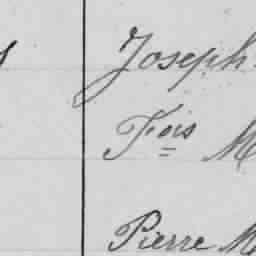 Joseph
Fois M
Pierre M